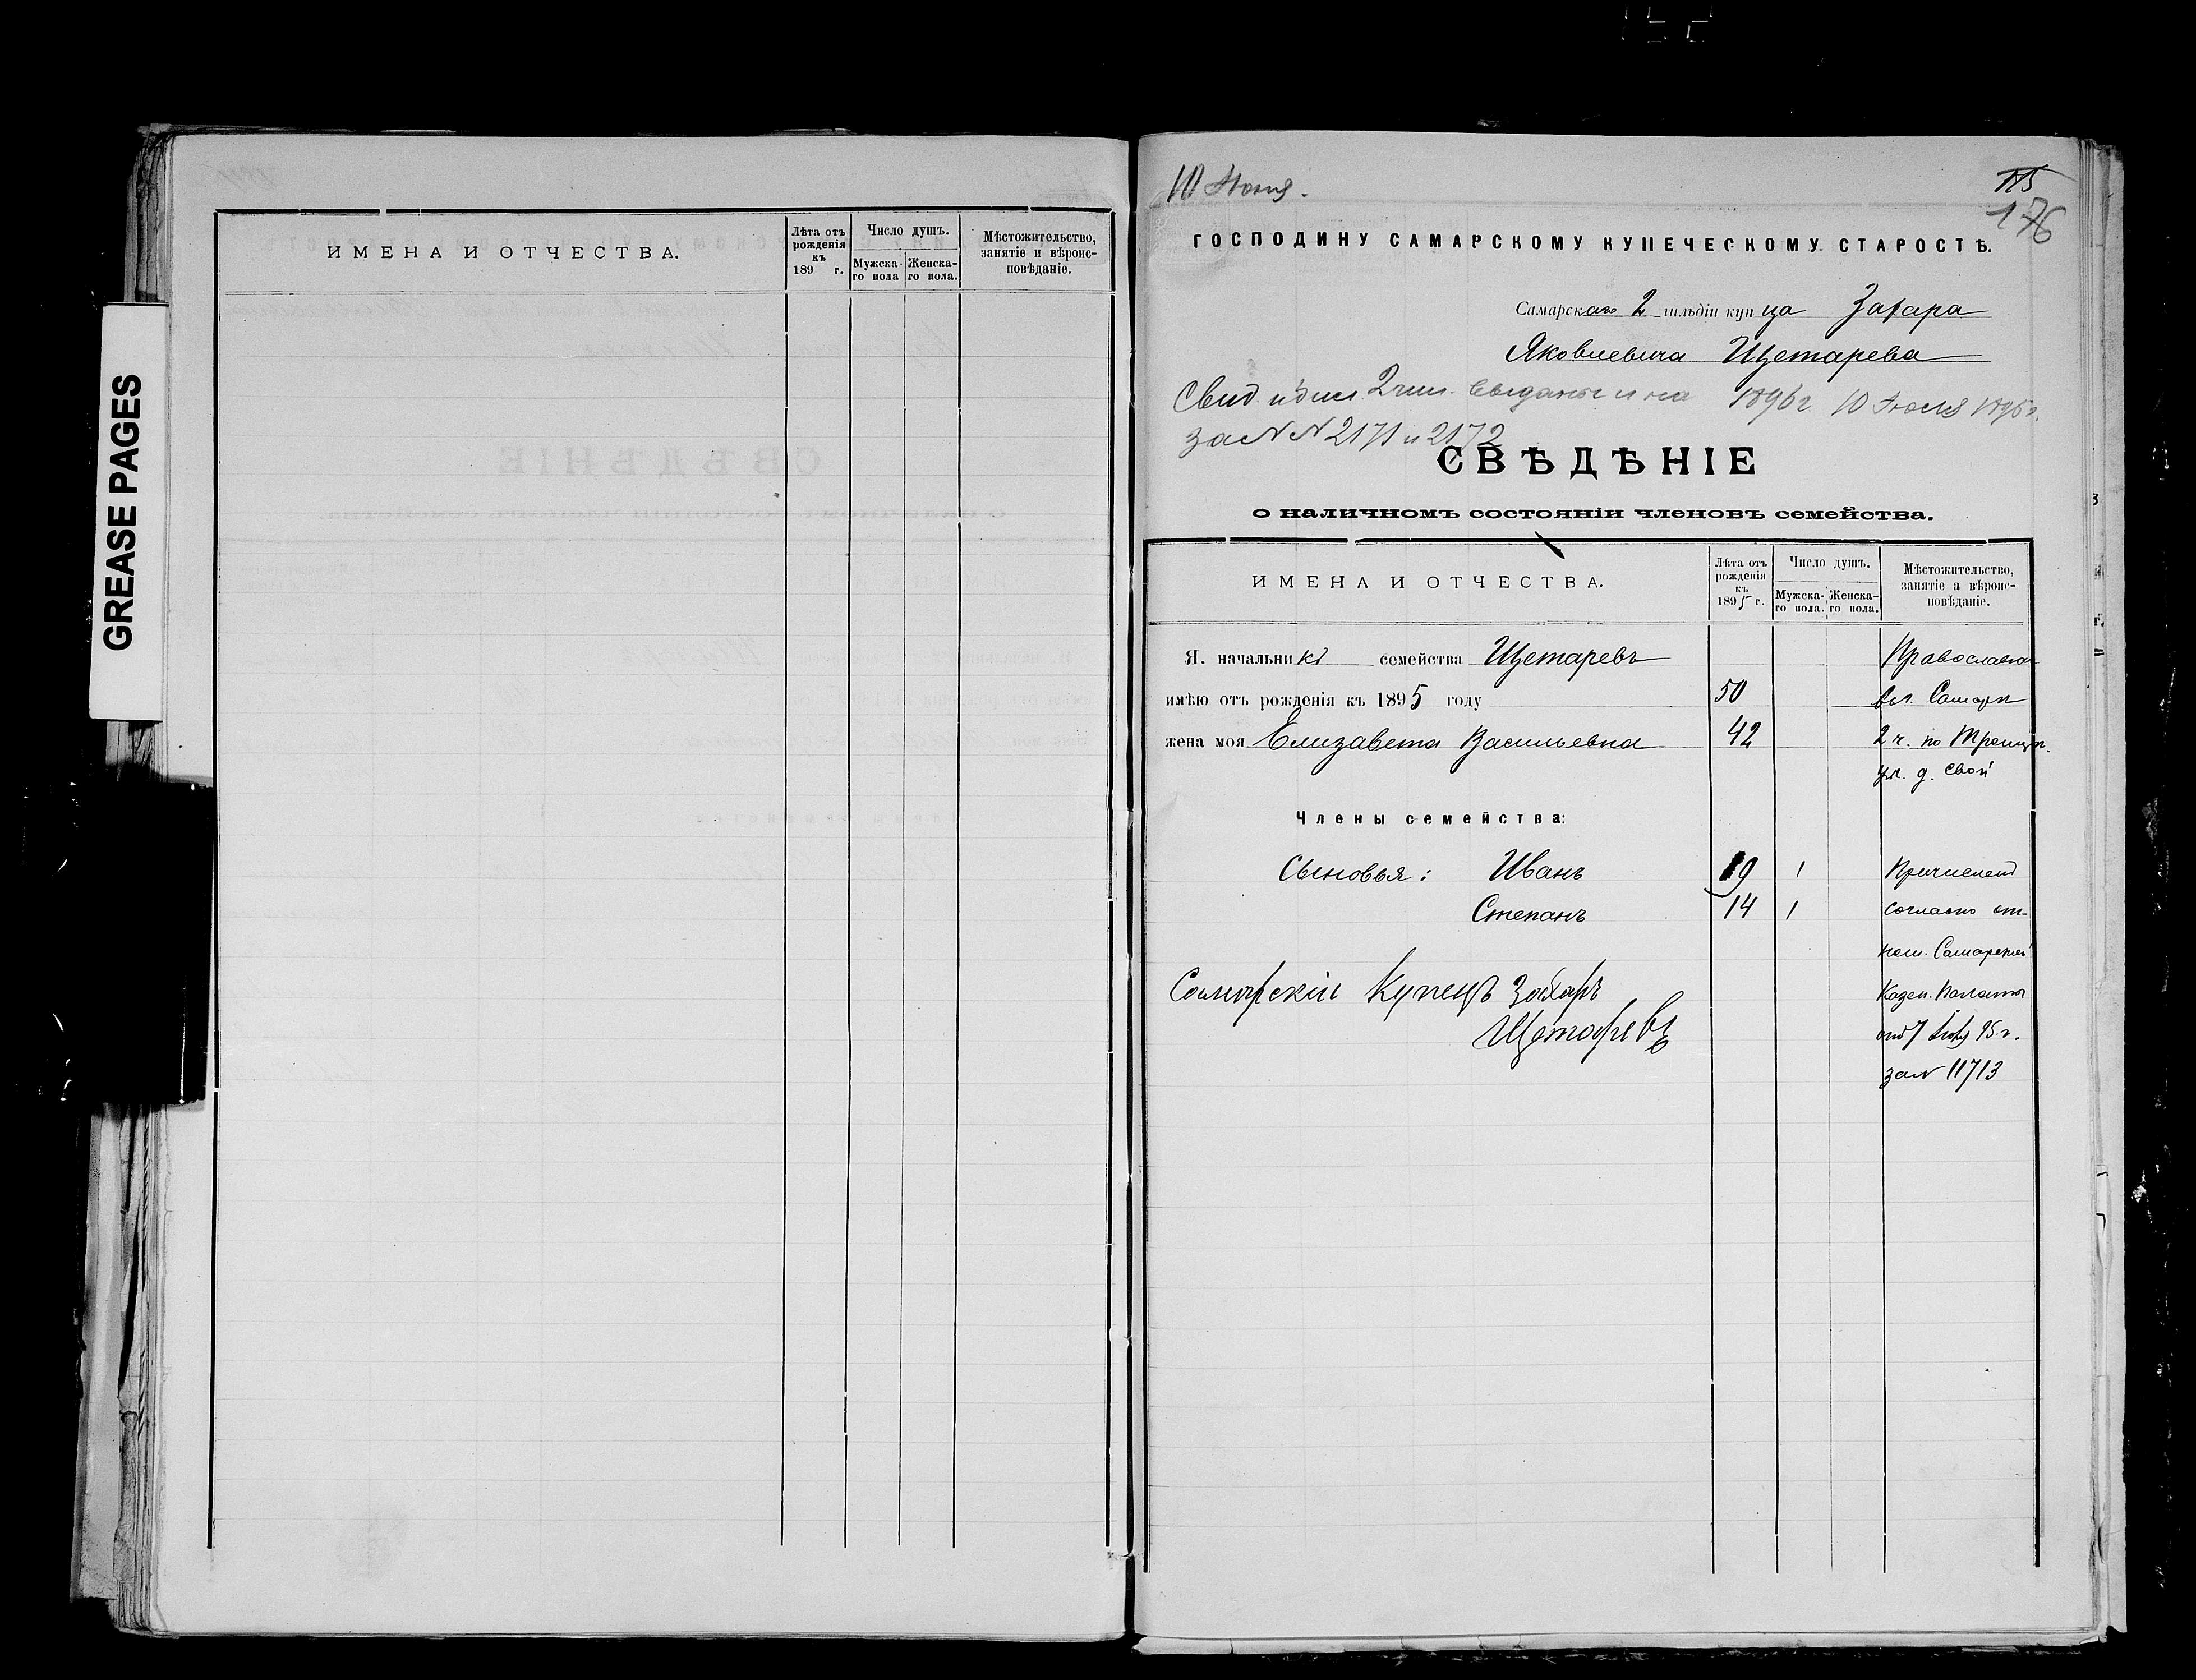 GREASE PAGES
ИМЕНА И ОТЧЕСТВА.
Лѣта отъ рожденія къ 189 г.
Число душъ.
Мужска-го пола
Женска-го пола.
Мѣстожительство, занятіе и вѣроис-повѣданіе.
10 Июля.
175
176
ГОСПОДИНУ САМАРСКОМУ КУПЕЧЕСКОМУ СТАРОСТѢ.
Самарскаго 2 гильдіи купца Захара
Яковлевича Щетарева
Свид. 2 гил. выданы на 1896 г. 10 Июля 1895 г.
за N N 2171 и 2172
СВѢДѢНІЕ
о наличномъ состояніи членовъ семейства.
ИМЕНА И ОТЧЕСТВА.
Лѣта отъ рожденія къ 1895 г.
Число душъ.
Мужска-го пола.
Женска-го пола.
Мѣстожительство, занятіе а вѣроис-повѣданіе.
Я. начальникъ семейства Щетаревъ Православнаго
имѣю отъ рожденія къ 1895 году 50 въ г. Самарѣ
жена моя Елизавета Васильевна 42 2 ч. по Троицк.
ул. д. свой
Члены семейства:
Сыновья: Иванъ 19 1 Причисленъ
Степанъ 14 1 согласно от-
нош. Самарской
Самарскій Купецъ Захаръ Казен. Палаты
Щетаревъ отъ 7 Июля 95 г.
за N 11713